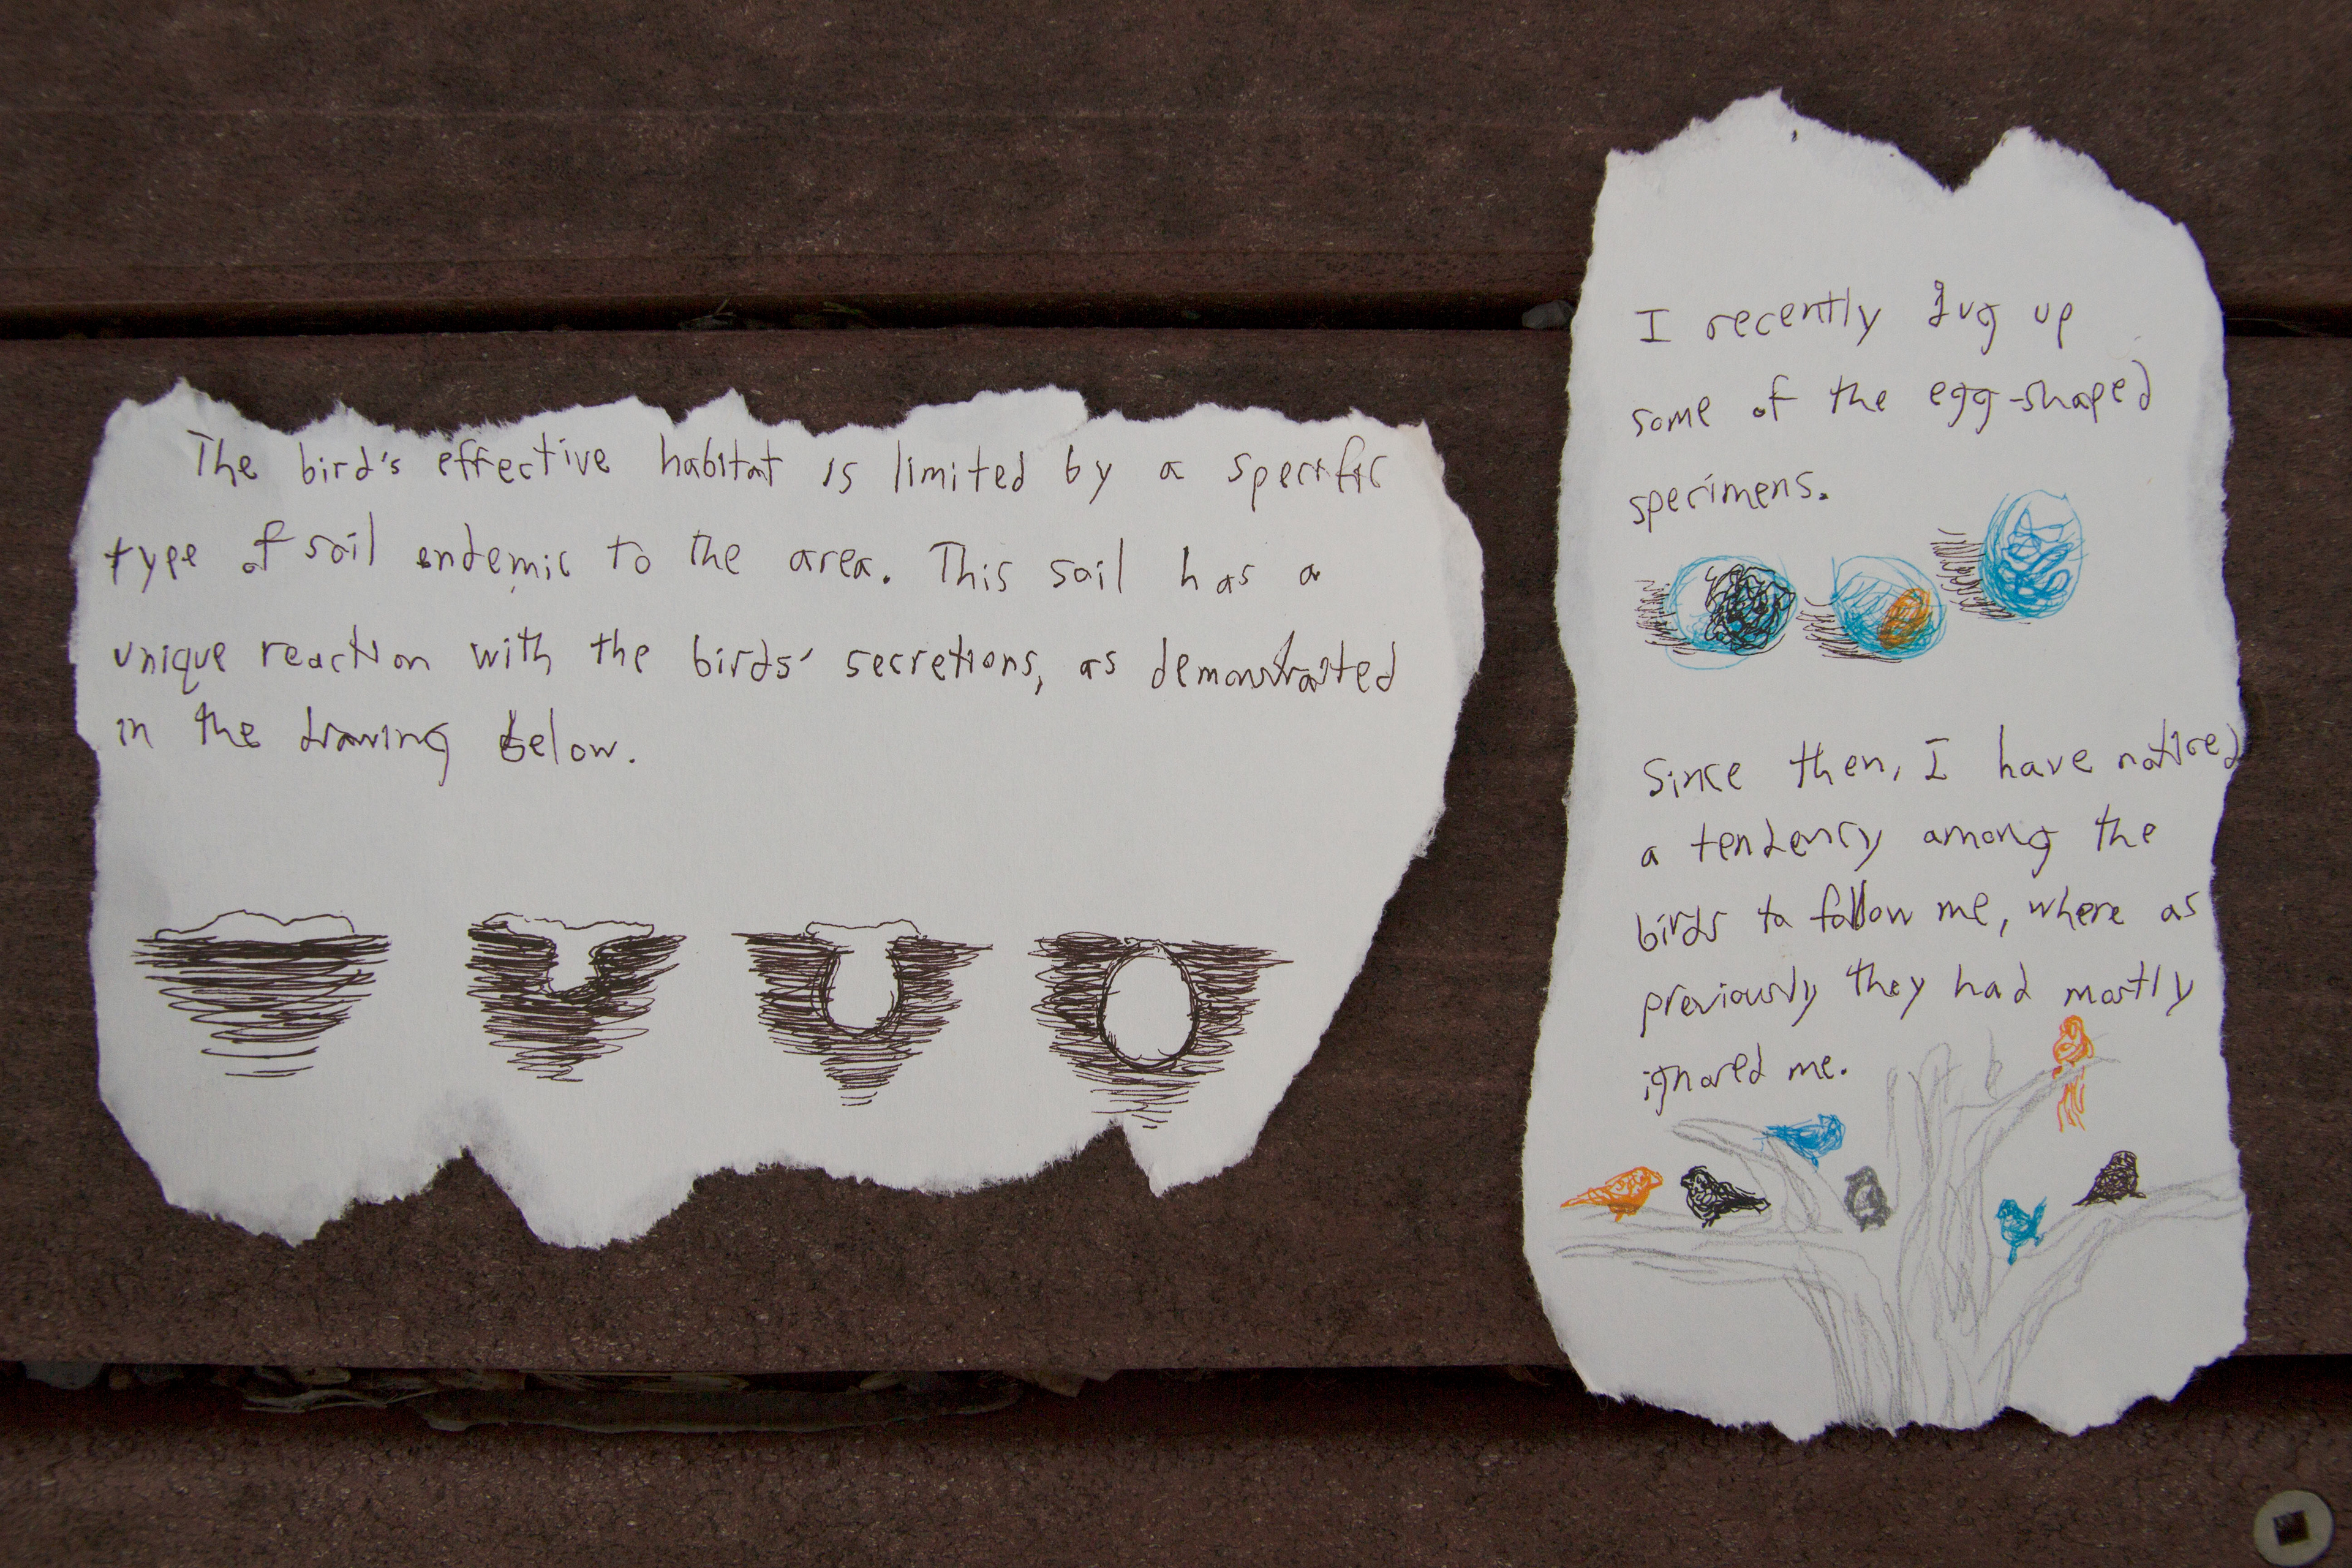 The bird's effective habitat is limited by a specific
type of soil endemic to the area. This soil has a
unique reaction with the birds' secretions, as demonstrated
in the drawing below.
I recently dug up
some of the egg-shaped
specimens.
Since then, I have noticed
a tendency among the
birds to follow me, where as
previously they had mostly
ignored me.